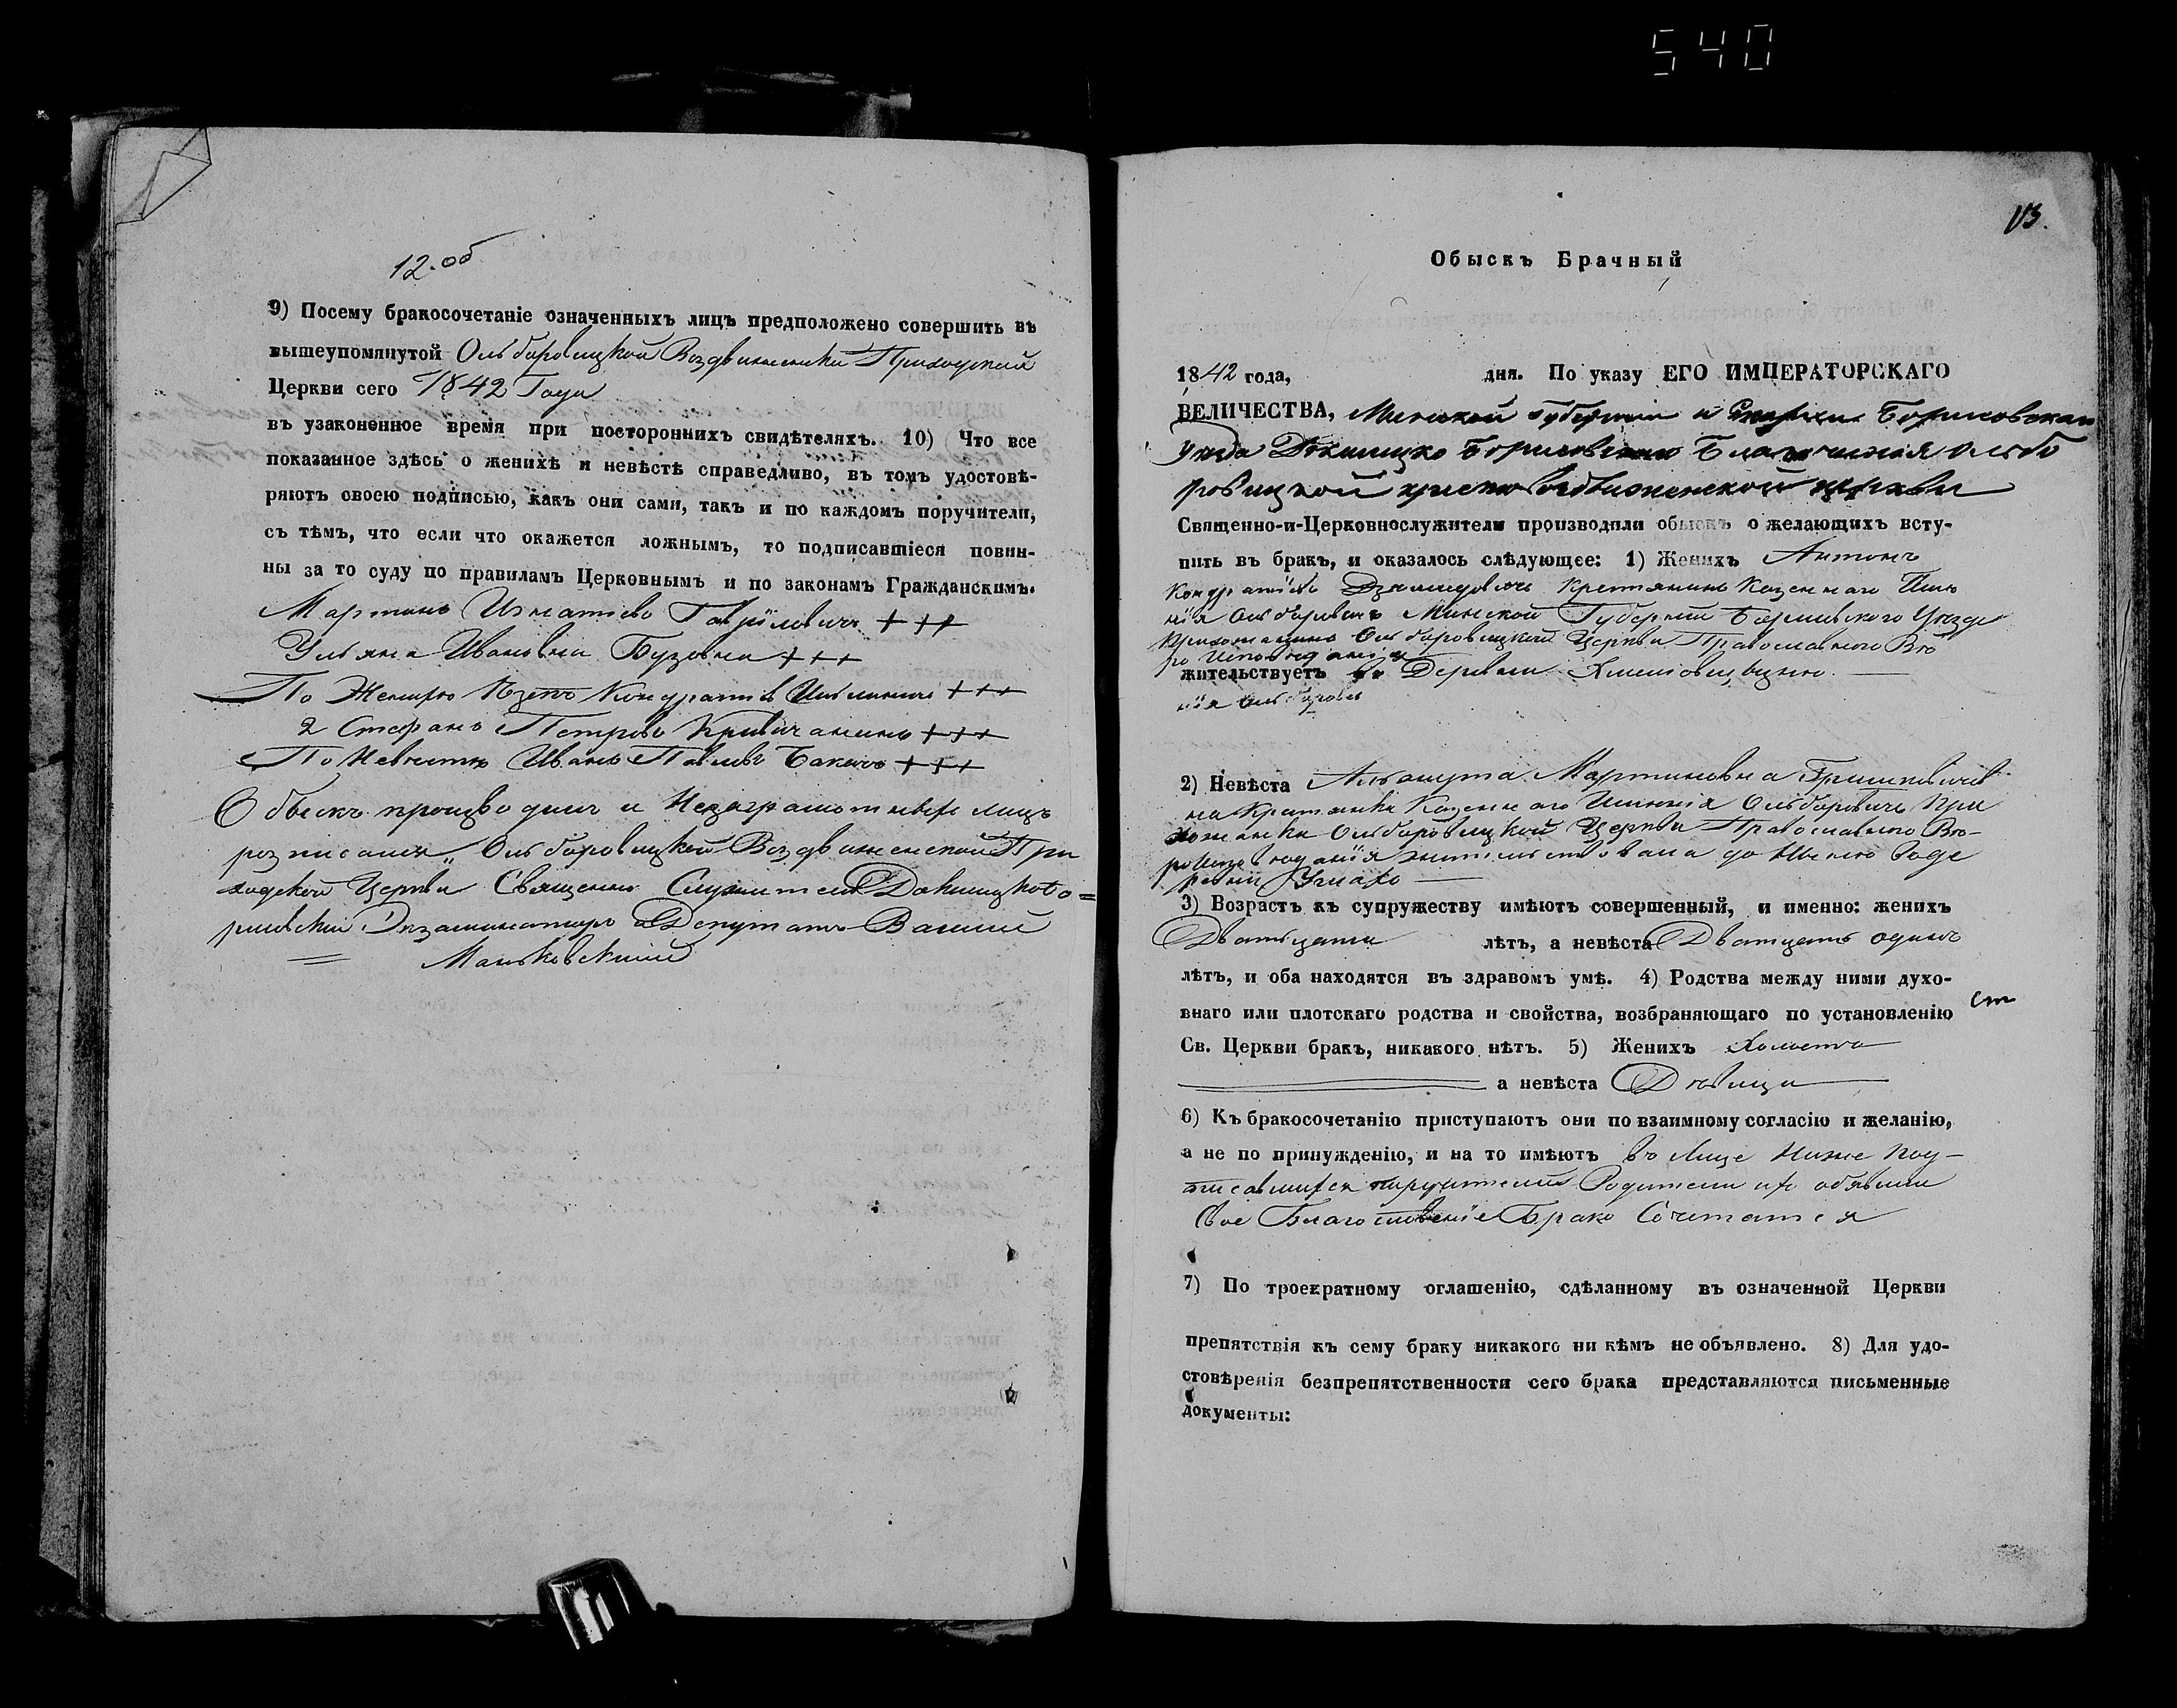 540
12.об
9) Посему бракосочетаніе означенныхъ лицъ предположено совершить въ
вышеупомянутой Ольборовицкой Воздвиженской Приходской
Церкви сего 1842 Года
въ узаконенное время при постороннихъ свидѣтеляхъ. 10) Что все
показанное здѣсь о женихѣ и невѣстѣ справедливо, въ томъ удостовѣ-
ряютъ своею подписью, какъ они сами, такъ и по каждомъ поручители,
съ тѣмъ, что если что окажется ложнымъ, то подписавшіеся повин-
ны за то суду по правиламъ Церковнымъ и по законамъ Гражданскимъ.
Мартинъ Игнатіевъ Гаврїловичъ +++
Ульяна Ивановна Бузовна +++
По Женихю Кондратїв +++
2 Стефанъ Петровъ Кривичанинъ +++
По Невестю Иванъ Павловъ Бакачъ +++
Обыскъ производилъ и лицъ
розписался Ольборовицкой Воздвиженской При
ходской Церкви Священно Служитель Докшицкобо=
рисовскій Депутатъ
Маньковский
113.
Обыскъ Брачный
1842 года, дня. По указу ЕГО ИМПЕРАТОРСКАГО
ВЕЛИЧЕСТВА, Минской Губерніи и Епархіи Борисовскаго
Уезда Докшицко Борисовскаго Благочинія Ольбо
ровицкой кресто воздвиженской церкви
Священно-и-Церковнослужители производили обыскъ о желающихъ всту-
пить въ бракъ, и оказалось слѣдующее: 1) Женихъ Антонъ
Кондратїевъ Крестянинъ Казеннаго Име
нїя Ольборовичъ Минской Губерніи Борисовского Уюзда
Прихожанинъ Ольборовицкой Церкви Православного Вю
ро Исповюданія
жительствуетъ въ Деревни
нїя Ольборович
2) Невѣста Мартиновна
на Крестянка Казеннаго Именїя Ольборовичъ При
хожанка Ольборовицкой Церкви Православного Вю-
ро Исповюданїя жительствовала до Ныню
ревни
3) Возрастъ къ супружеству имѣютъ совершенный, и именно: женихъ
Дватцати лѣтъ, а невѣста Дватцать одинъ
лѣтъ, и оба находятся въ здравомъ умѣ. 4) Родства между ними духо-
внаго или плотскаго родства и свойства, возбраняющаго по установленію
Св. Церкви бракъ, никакого нѣтъ. 5) Женихъ Холостъ
а невѣста Дювица
6) Къ бракосочетанію приступаютъ они по взаимному согласію и желанію,
а не по принужденію, и на то имѣютъ въ Лице Ниже Под-
писавшихся поручителей Родители ихъ объявили
Свое Благословенїе Бракъ Сочетатся
7) По троекратному оглашенію, сдѣланному въ означенной Церкви
препятствія къ сему браку никакого ни кѣмъ не объявлено. 8) Для удо-
стовѣренія безпрепятственности сего брака представляются письменные
документы: